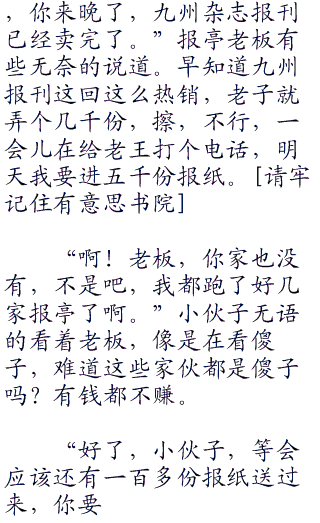 ，你来晚了，九州杂志报刊
已经卖完了。”报亭老板有
些无奈的说道。早知道九州
报刊这回这么热销，老子就
弄个几千份，擦，不行，一
会儿在给老王打个电话，明
天我要进五千份报纸。[请牢
记住有意思书院]
“啊！老板，你家也没
有，不是吧，我都跑了好几
家报亭了啊。”小伙子无语
的看着老板，像是在看傻
子，难道这些家伙都是傻子
吗？有钱都不赚。
“好了，小伙子，等会
应该还有一百多份报纸送过
来，你要